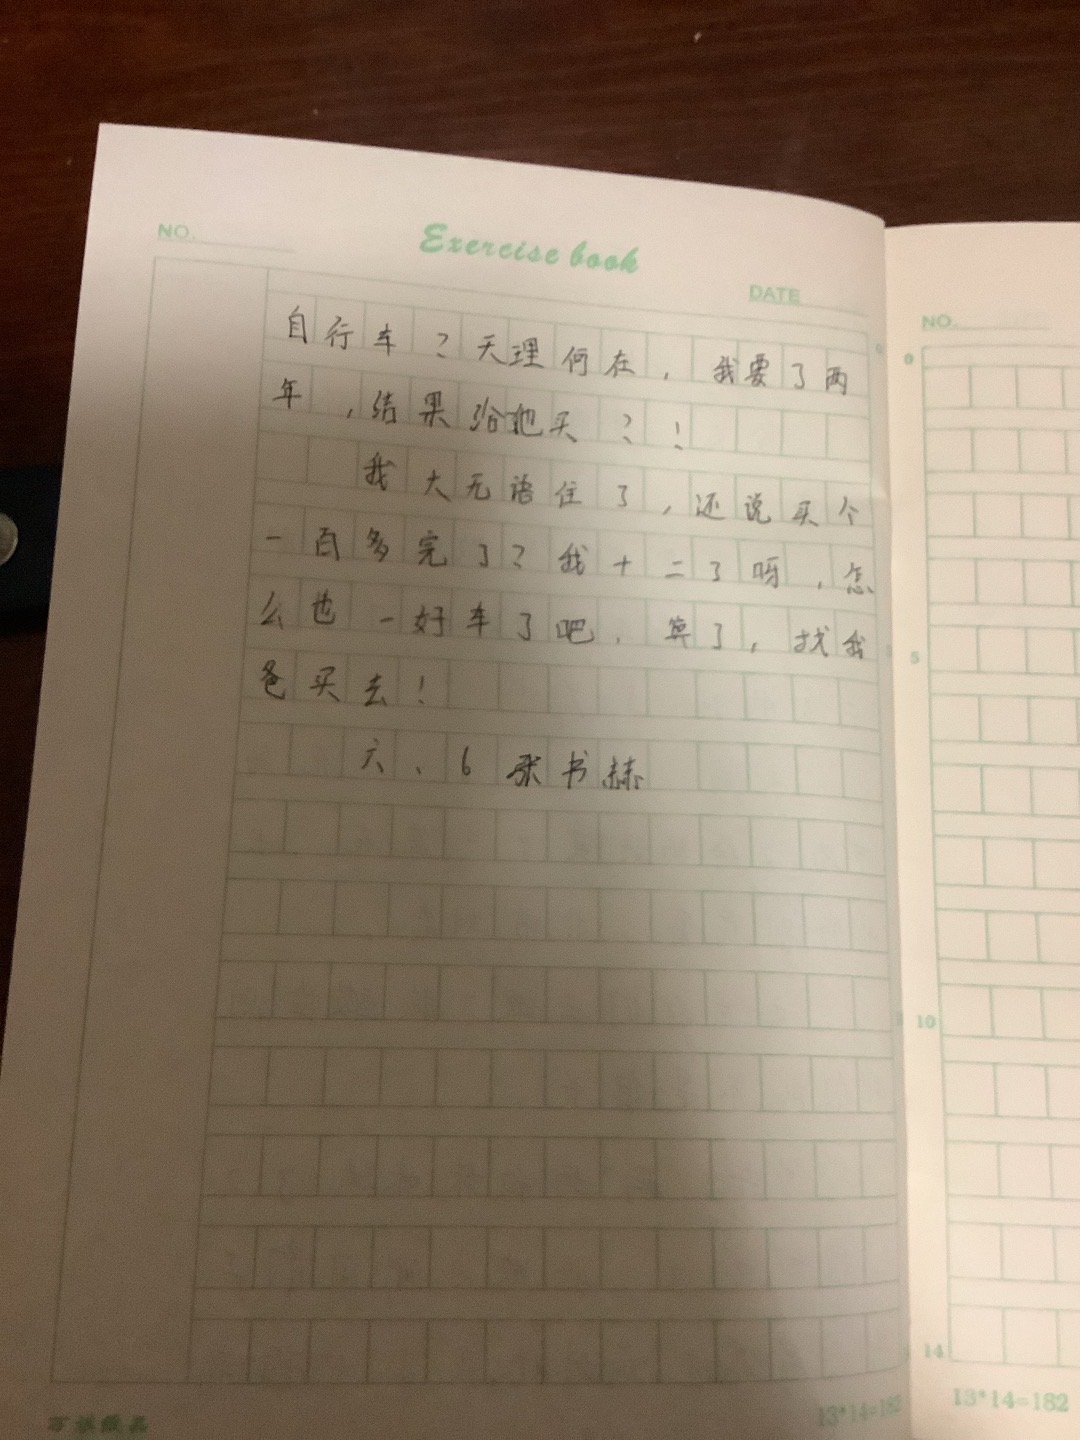 NO.
Exercise book
DATE
自行车?天理何在,我要了两
年,结果给他买?!
我大无语住了,还说买个
一百多完了?我十二了呀,怎
么也一好车了吧.算了,找我
爸买去!
六、6 张书赫
13*14=182
NO.
0
5
10
14
13*14=182